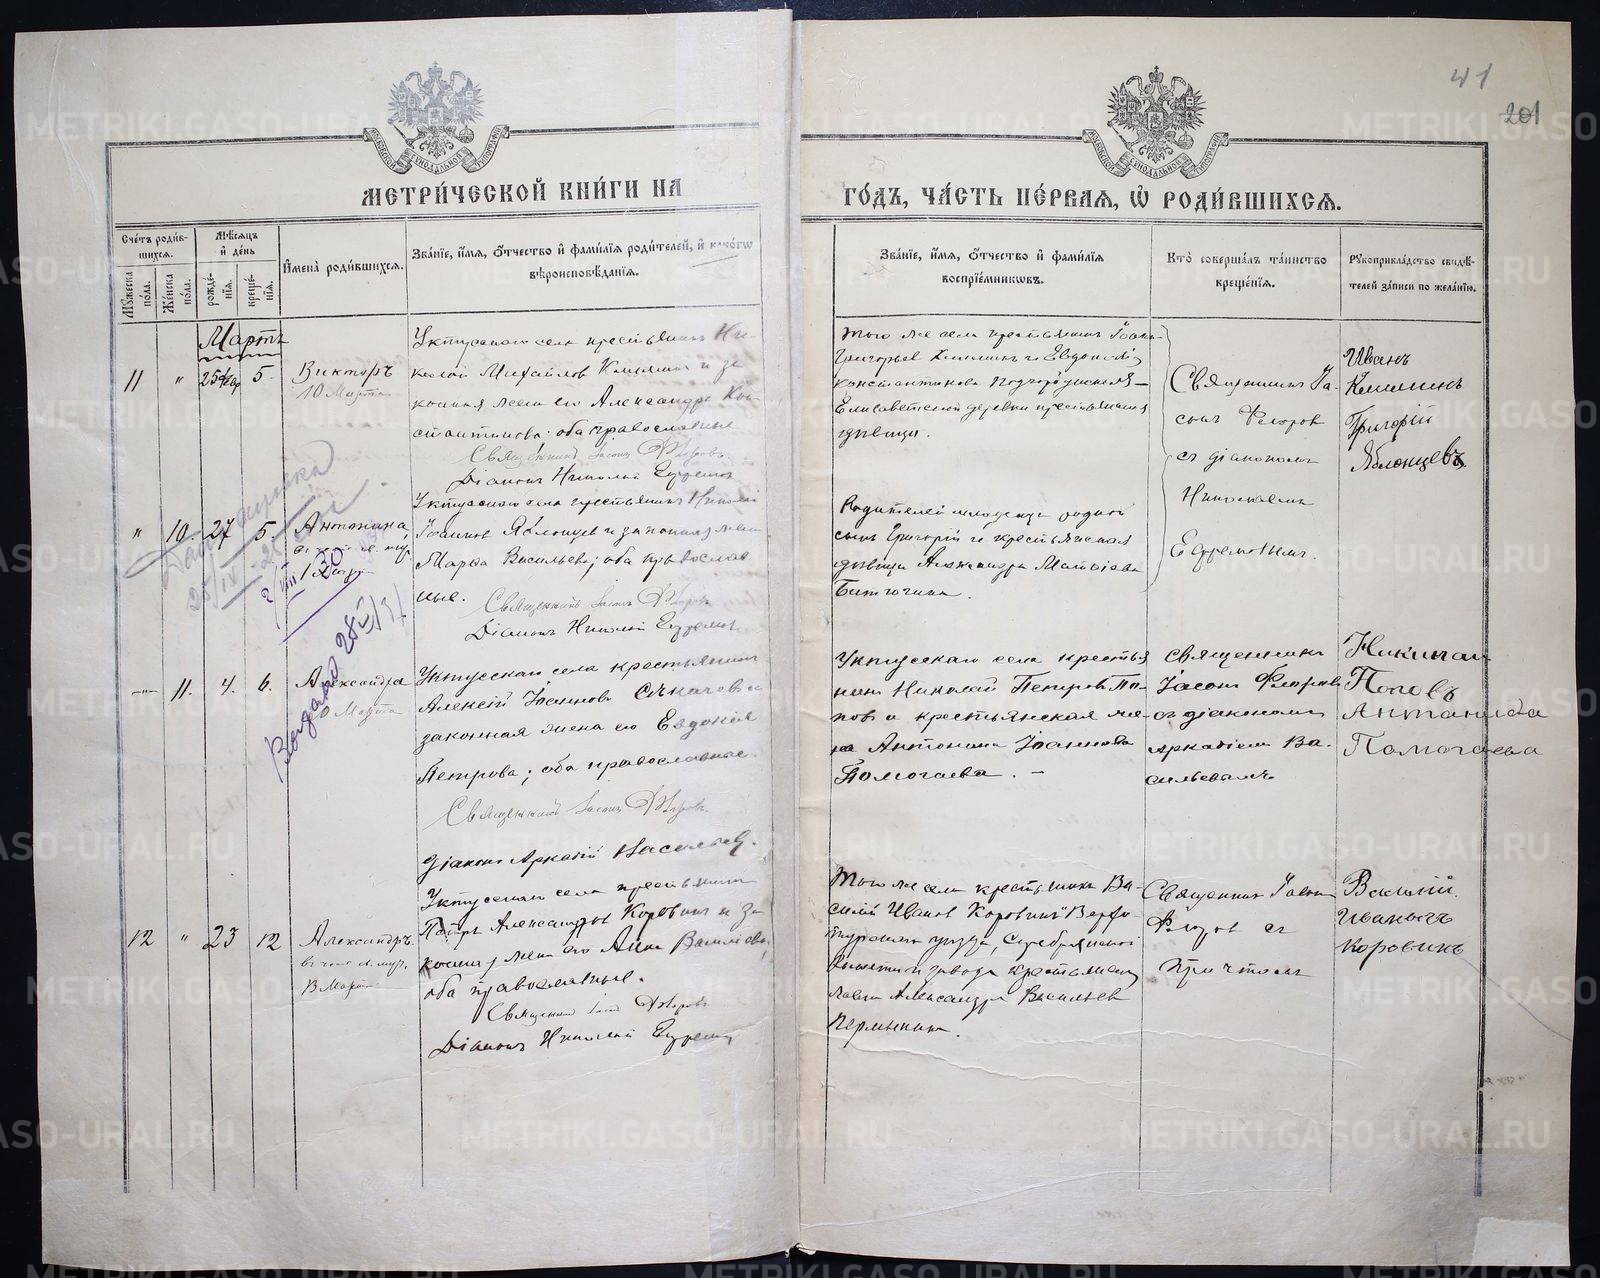 41
201
МЕТРИ́ЧЕСКОЙ КНИ́ГИ НА
ГО́ДЪ, ЧА́СТЬ ПЕ́РВАЯ, Ѡ҆ РОДИ́ВШИХСЯ.
Сче́тъ роди́в-
шихся.
Мѣ́сяцъ
и҆ де́нь
Мꙋ́жеска
по́ла.
Же́нска
по́ла.
рожде́-
нїя.
креще́-
нїя.
И҆мена̀ роди́вшихся.
Зва́нїе, и҆́мя, о҆́тчество и҆ фами́лїя роди́телей, и҆ како́гѡ
вѣроисповѣ́данїя.
Зва́нїе, и҆́мя, о҆́тчество и҆ фами́лїя
воспрїе́мникѡвъ.
Кто̀ соверша́лъ та́инство
креще́нїя.
Рꙋкоприкла́дство свидѣ́-
телей за́писи по жела́нїю.
Мартъ
11 " 25 фвр 5.
Викторъ
10 Марта
Уктусскаго села крестьянинъ Ни-
колай Михайлов Клишинъ и за-
конная жена его Александра Кон-
стантинова: оба православные
Священникъ Іасонъ Флоровъ
Діаконъ Николай Ефремовъ
Того же села крестьянинъ Іоанн
Григорьев Клишинъ и Евдокія
Константинова Подгородинская
Елисаветской деревни крестьянская
дѣвица.
Священникъ Іа-
сонъ Флоров
съ діакономъ
Николаемъ
Ефремовымъ.
Иванъ
Клишинъ
Григорій
Яблонцевъ.
" 10. 27 5.
Антонина
1 Марта
Уктусскаго села крестьянинъ Николай
Іоаннов Яблонцев и законная жена
Марѳа Васильева; оба православ-
ные.
Священникъ Іасонъ Флоровъ
Діаконъ Николай Ефремовъ
Родителей младенца родной
сынъ Григорій и крестьянская
дѣвица Александра Матѳіева
11. 4. 6.
Александра
Марта
Уктусскаго села крестьянинъ
Алексій Іоаннов
законная жена его Евдокія
Петрова; оба православные.
Священникъ Іасонъ Флоровъ
Діаконъ Аркадій Васильев.
Уктусскаго села крестья
нинъ Николай Петров По-
повъ и крестьянская же-
на Антонина Іоаннова
Помогаева. –
Священникъ
Іасонъ Флоровъ
съ діакономъ
Аркадіем Ва-
сильевымъ
Поповъ
Антонида
Помогаева
12 " 23 12
Александръ.
13 Марта
Уктусскаго села крестьянинъ
Петръ Александров Коровинъ и за-
конная жена его Анна Васильева,
оба православные.
Священникъ Іасонъ Флоровъ
Діаконъ Николай Ефремов
Того же села крестьянинъ Ва-
силій Иванов Коровинъ и Верхо-
турскаго уѣзда, Серебрянской
волости и завода крестьянская
жена Александра Васильев
Пермякина.
Священник Іасон
Флоров съ
причтомъ
Василий
Иванычъ
Коровинъ